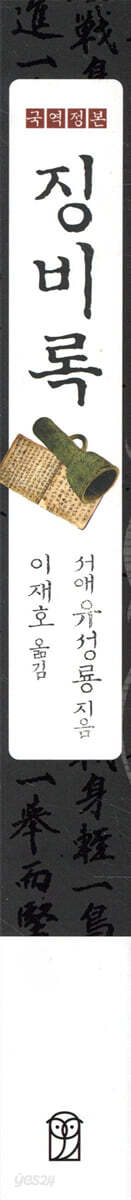 戰身
進一
국역정본
징비록
서애 유성룡 지음
이재호 옮김
戰身輕一鳥
一擧而堅
yes24